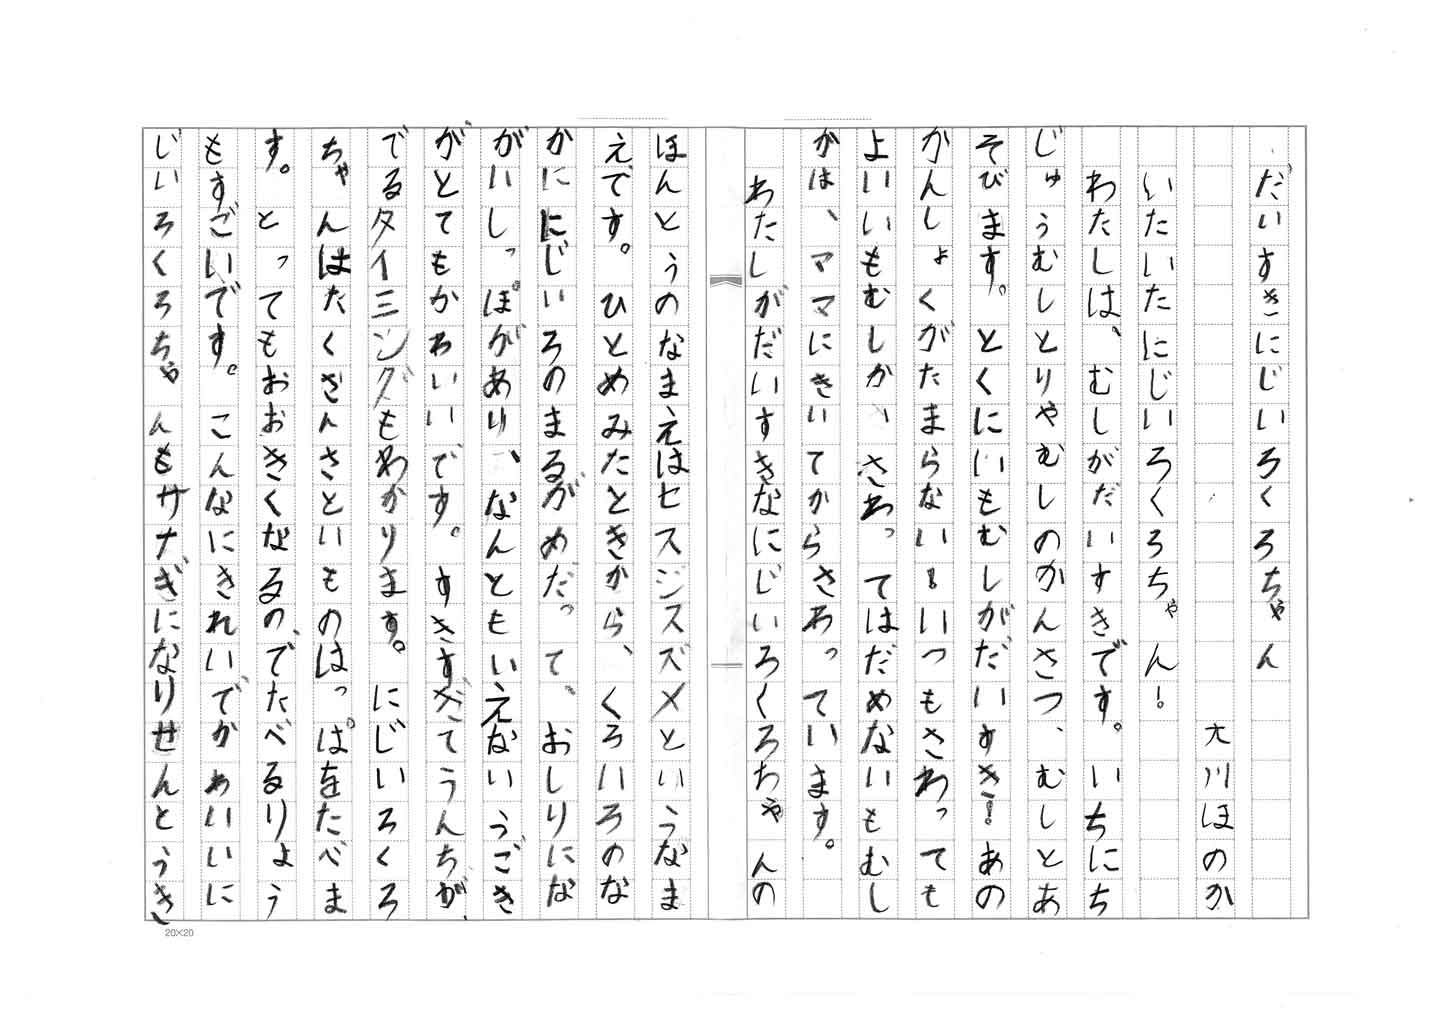 だいすきにじいろくろちゃん
大川ほのか
いたいたにじいろくろちゃん！
わたしは、むしがだいすきです。いちにち
じゅうむしとりやむしのかんさつ、むしとあ
そびます。とくにいもむしがだいすき！あの
かんしょくがたまらない！いつもさわっても
よいいもむしか、さわってはだめないもむし
かは、ママにきいてからさわっています。
わたしがだいすきなにじいろくろちゃんの
ほんとうのなまえはセスジスズメというなま
えです。ひとめみたときから、くろいろのな
かににじいろのまるがめだって、おしりにな
がいしっぽがあり、なんともいえないうごき
がとてもかわいいです。すきすぎてうんちが、
でるタイミングもわかります。にじいろくろ
ちゃんはたくさんさといものはっぱをたべま
す。とってもおおきくなるので、たべるりょう
もすごいです。こんなにきれいで、かわいいに
じいろくろちゃんもサナギになりせんとうき
20×20